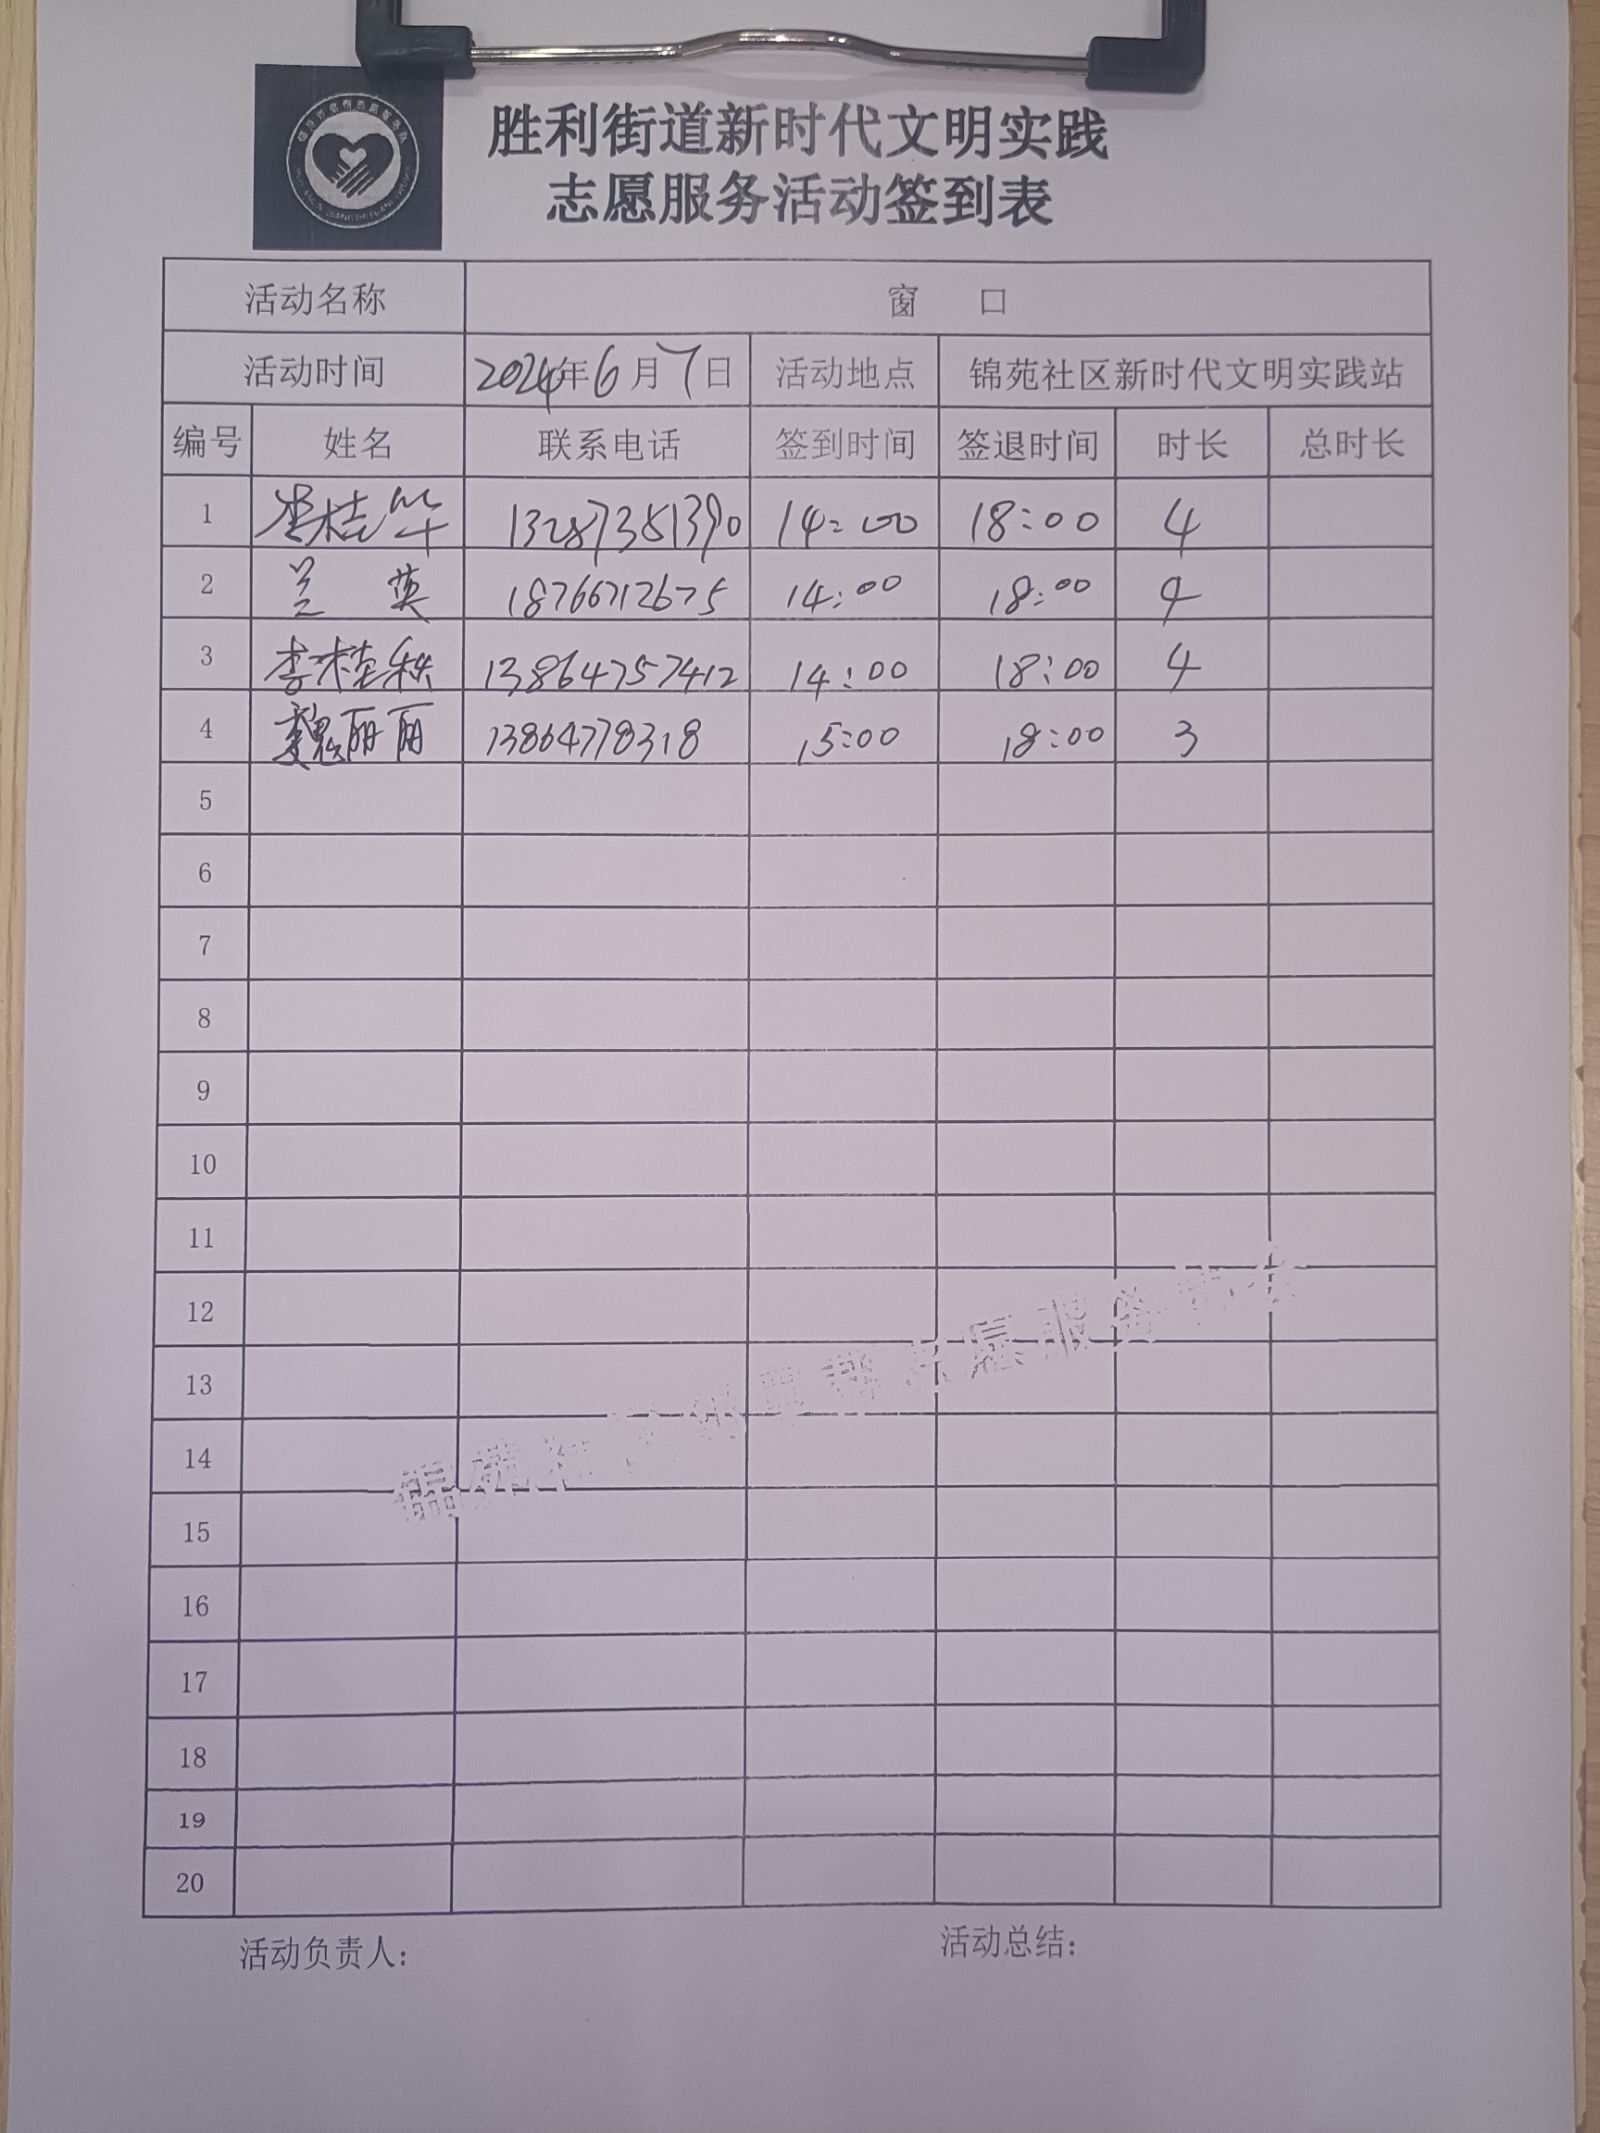 胜利街道新时代文明实践
志愿服务活动签到表
活动名称 窗 口
活动时间 2024年6月7日 活动地点 锦苑社区新时代文明实践站
编号 姓名 联系电话 签到时间 签退时间 时长 总时长
1 李桂华 13287381390 14:00 18:00 4
2 兰英 18766712675 14:00 18:00 4
3 李桂秩 138647757412 14:00 18:00 4
4 魏丽丽 13864778318 15:00 18:00 3
5
6
7
8
9
10
11
12
13
14
15
16
17
18
19
20
锦苑社区 志愿服务
活动负责人: 活动总结: